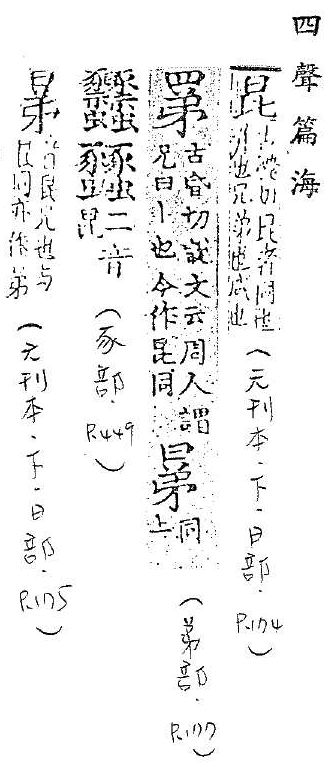 四聲篇海
昆 古渾切昆者同也
也兄弟也咸也
(元刊本.下.日部.P.174)
罤 古昏切說文云周人謂
兄曰丨也今作昆同
同上
(弟部.P.177)
二音
昆
(豕部.P.449)
音昆兄也与
昆同亦作弟
(元刊本.下.日部.P.175)